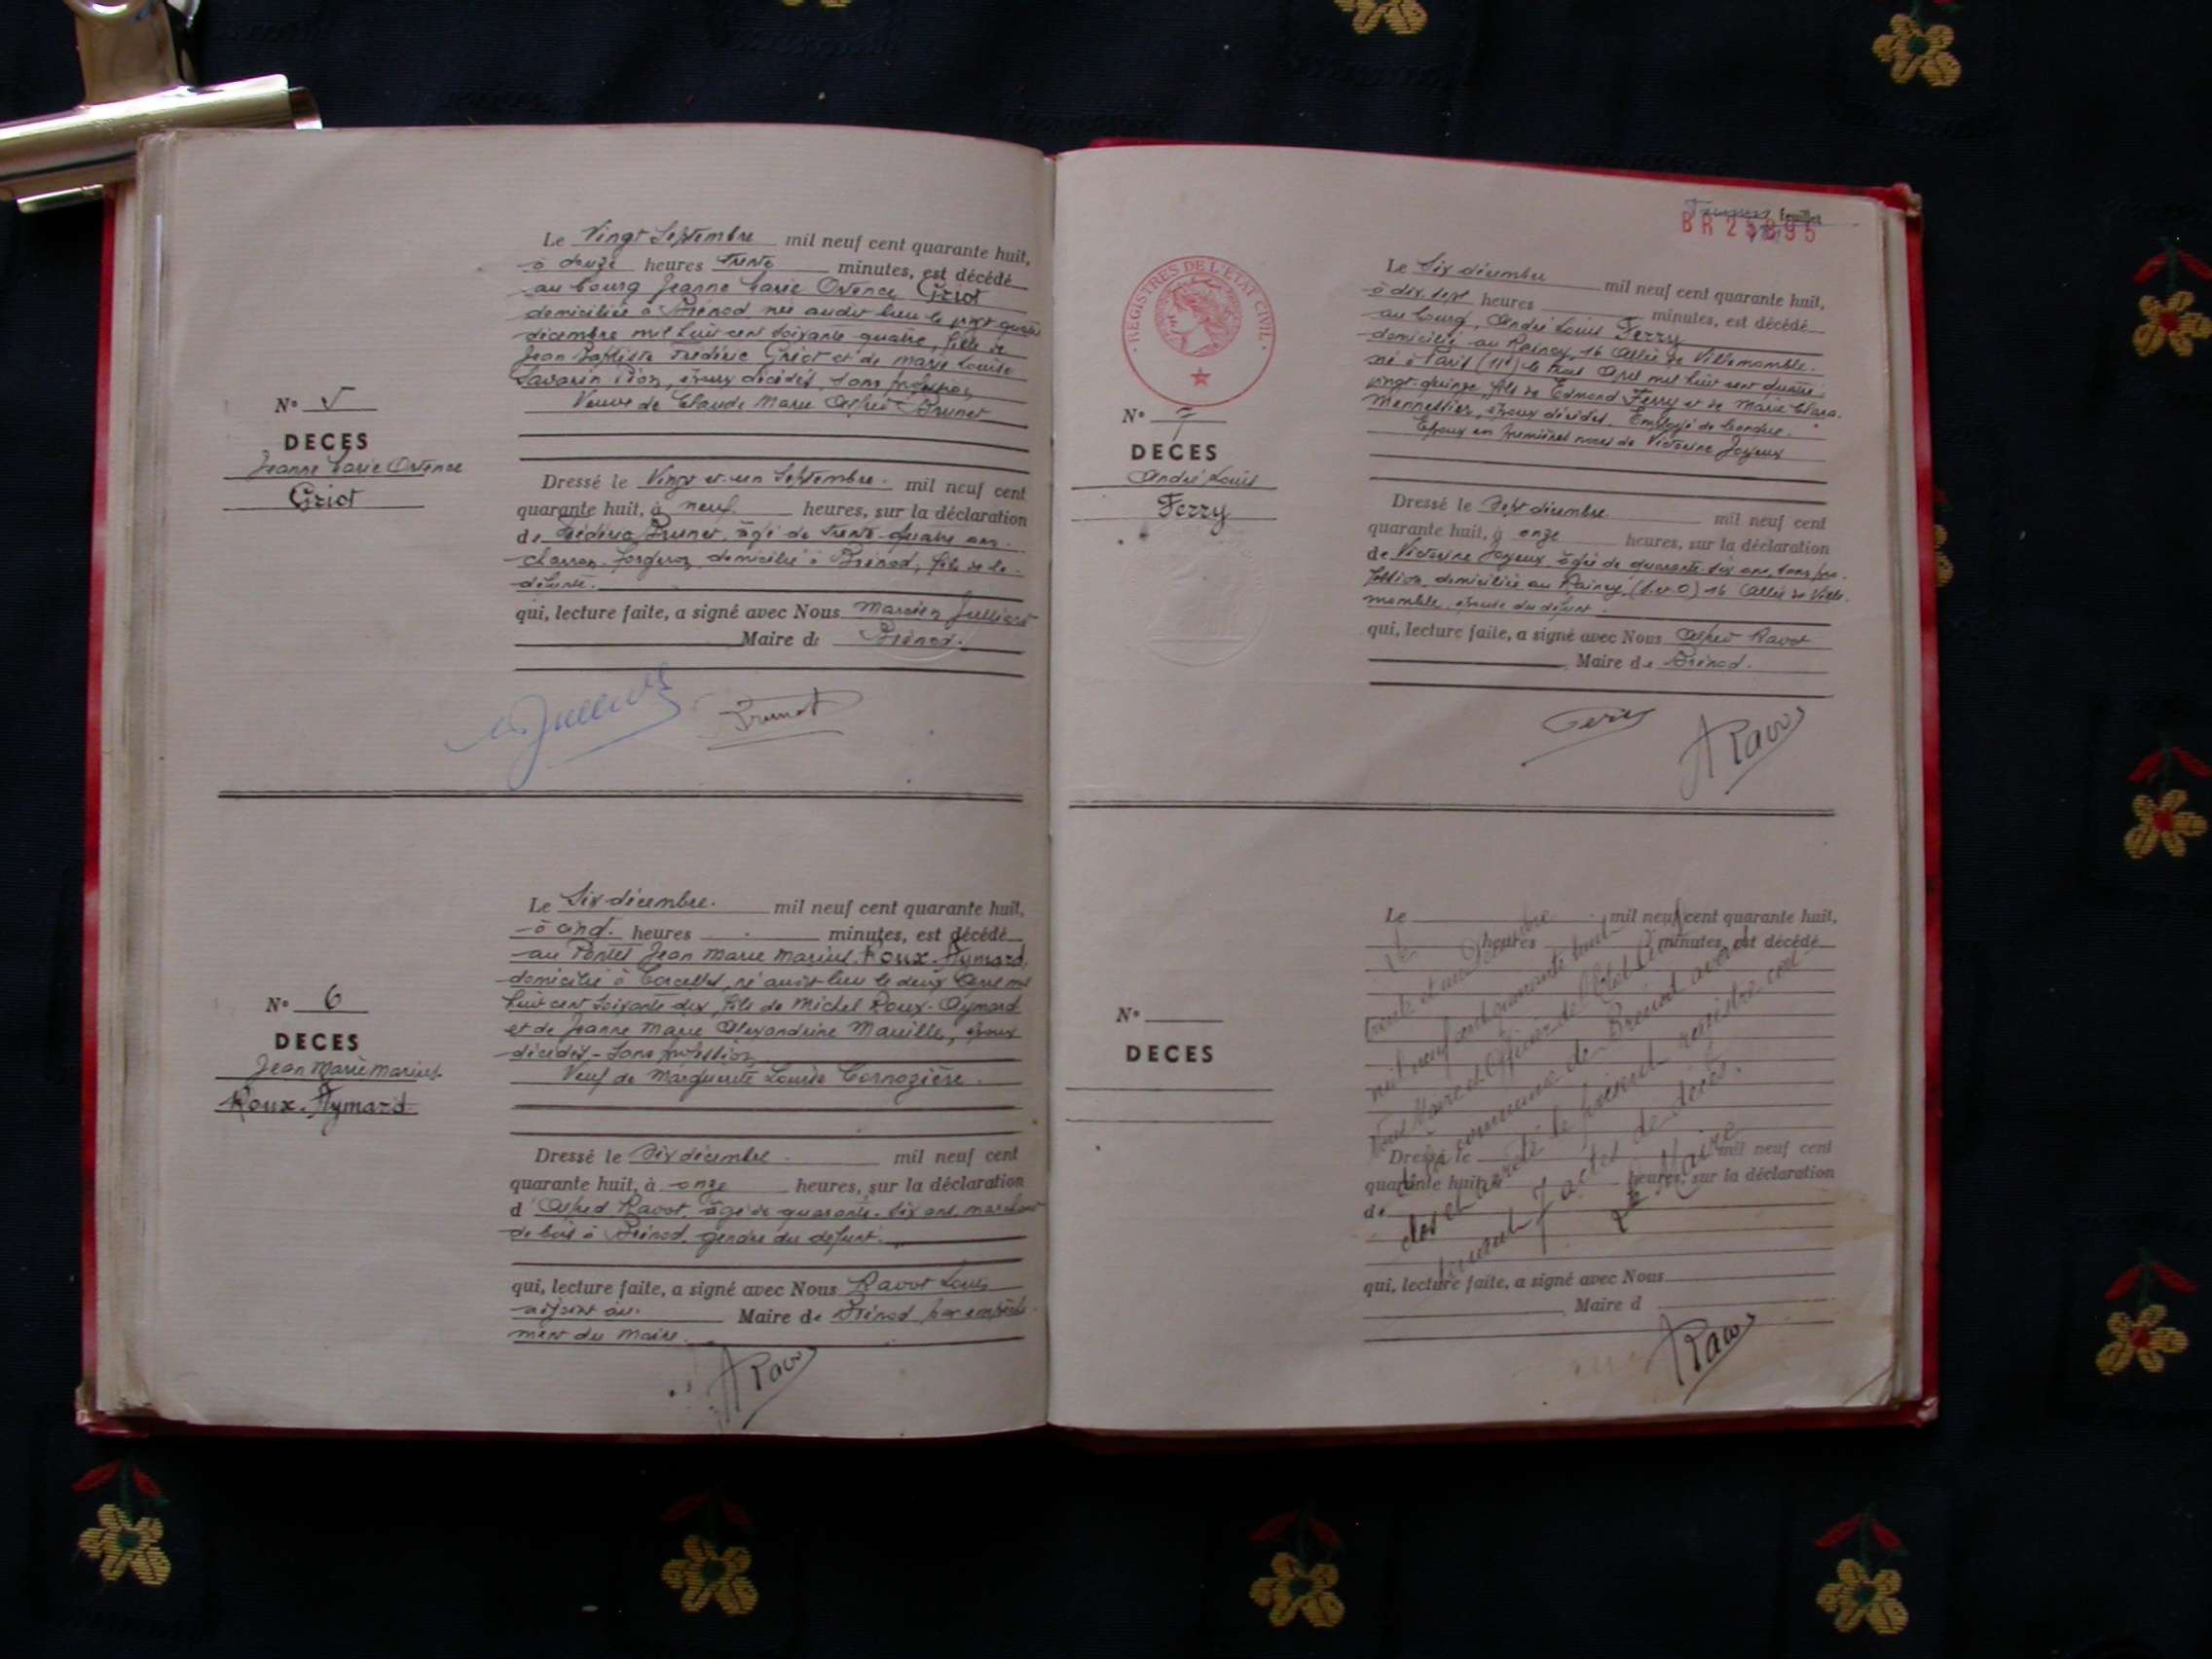 Le Vingt Septembre mil neuf cent quarante huit,
à douze heures trente minutes, est décédé
au bourg Jeanne Marie Ostence Griot
domiciliée à Brénod née audit lieu le vingt quatre
décembre mil huit cent soixante quatre, fille de
Jean Baptiste Frédéric Griot et de Marie Louise
Savarin époux décédés, sans profession,
Veuve de Claude Marie Alfred Brunet
N° 5
DECES
Jeanne Marie Ostence
Griot
Dressé le Vingt et un Septembre. mil neuf cent
quarante huit, à neuf heures, sur la déclaration
de Frédéric Brunet, âgé de trente-quatre ans.
charron forgeron, domicilié à Brénod, fils de la
défunte.
qui, lecture faite, a signé avec Nous Marcien Julliard
Maire de Brénod.
Brunet
Le Six décembre. mil neuf cent quarante huit,
à cinq. heures minutes, est décédé
au Pontet Jean Marie Marius Roux-Aymard,
domicilié à Corcelles, né audit lieu le deux Avril mil
huit cent soixante dix, fils de Michel Roux-Aymard
et de Jeanne Marie Alexandrine Maville, époux
décédés - sans profession
Veuf de Marguerite Louise Cornozière.
N° 6
DECES
Jean Marie Marius
Roux-Aymard
Dressé le Six décembre mil neuf cent
quarante huit, à onze heures, sur la déclaration
d' Alfred Ravot, âgé de quarante-six ans, marchand
de bois à Brénod, gendre du défunt.
qui, lecture faite, a signé avec Nous Ravot Louis
adjoint au Maire de Brénod par empêche-
ment du maire.
A Ravot
feuillet
BR 25895
REGISTRES DE L'ETAT CIVIL
Le Six décembre mil neuf cent quarante huit,
à dix sept heures minutes, est décédé
au bourg, André Louis Ferry
domicilié au Raincy, 16 Allée de Villemomble.
né à Paris (11e) le trois Avril mil huit cent quatre
vingt-quinze, fils de Edmond Ferry et de Marie Clara
Mennessier, époux décédés. Employé de
Epoux en premières noces de Victorine Joyeux
N° 7
DECES
André Louis
Ferry
Dressé le Sept décembre mil neuf cent
quarante huit, à onze heures, sur la déclaration
de Victorine Joyeux, âgée de quarante-six ans, sans pro-
fession, domiciliée au Raincy (S.et.O) 16 Allée de Ville-
momble, épouse du défunt.
qui, lecture faite, a signé avec Nous Alfred Ravot
Maire de Brénod.
A Ravot
Le mil neuf cent quarante huit,
heures minutes, est décédé
N°
DECES
Dressé le mil neuf cent
quarante huit, à heures, sur la déclaration
de
qui, lecture faite, a signé avec Nous
Maire d
Le trente et un Décembre
mil neuf cent quarante huit
Nous Maire et Officier de l'Etat Civil
de la commune de Brénod avons
clos et arrêté le présent registre con-
tenant 7 actes de décès.
Le Maire
A Ravot